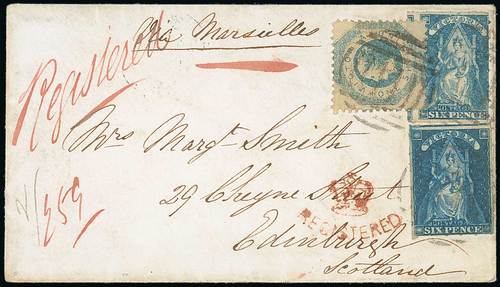 Via Marseilles
Registered
VICTORIA
SIX PENCE
VICTORIA
SIX PENCE
Mrs Margt. Smith
29 Cheyne Street
REGISTERED
Edinburgh
Scotland
259